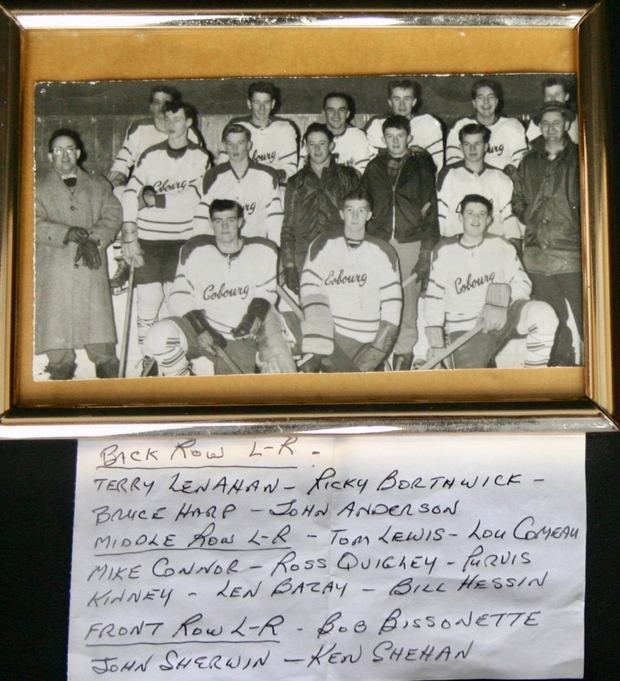 Cobourg
Cobourg
Cobourg
Cobourg
Cobourg
Cobourg
BACK ROW L-R -
TERRY LENAHAN - RICKY BORTHWICK -
BRUCE HARP - JOHN ANDERSON
MIDDLE ROW L-R - TOM LEWIS - LOU COMEAU
MIKE CONNOR - ROSS QUIGLEY - PURVIS
KINNEY - LEN BAZAY - BILL HESSIN
FRONT ROW L-R - BOB BISSONETTE
JOHN SHERWIN - KEN SHEHAN